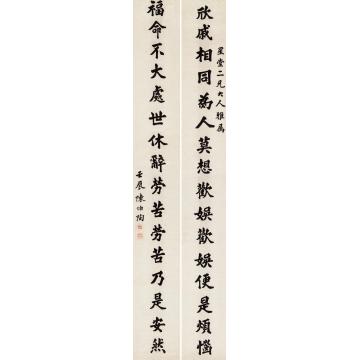 欣戚相同為人莫想歡娛歡娛便是煩惱
星堂二兄大人雅屬
福命不大處世休辭勞苦勞苦乃是安然
壬辰陳伯陶